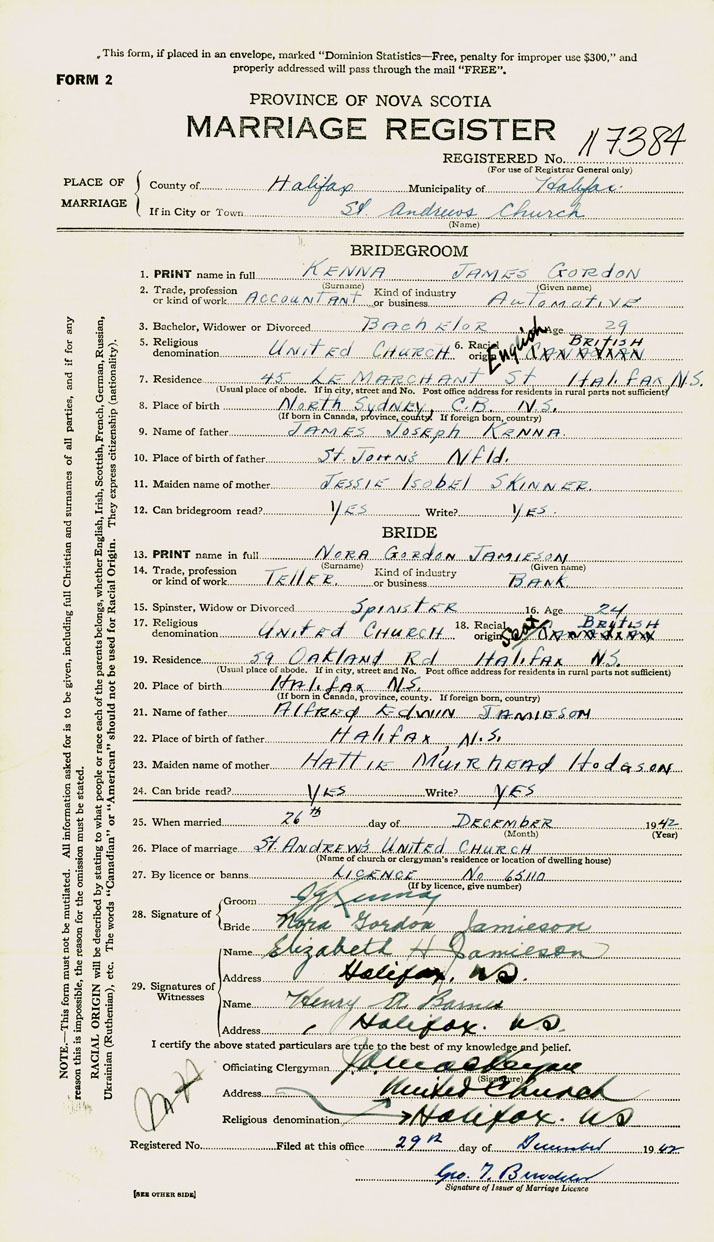 This form, if placed in an envelope, marked "Dominion Statistics—Free, penalty for improper use $300," and
properly addressed will pass through the mail "FREE".
FORM 2
PROVINCE OF NOVA SCOTIA
MARRIAGE REGISTER
REGISTERED No. 117384
(For use of Registrar General only)
PLACE OF MARRIAGE
County of Halifax Municipality of Halifax
If in City or Town St. Andrews Church
(Name)
BRIDEGROOM
1. PRINT name in full KENNA JAMES GORDON
(Surname) (Given name)
2. Trade, profession or kind of work ACCOUNTANT Kind of industry or business AUTOMOTIVE
3. Bachelor, Widower or Divorced BACHELOR Age 29
5. Religious denomination UNITED CHURCH 6. Racial origin English BRITISH CANADIAN
7. Residence 45 LE MARCHANT St HALIFAX N.S.
(Usual place of abode. If in city, street and No. Post office address for residents in rural parts not sufficient)
8. Place of birth NORTH SYDNEY, C.B. N.S.
(If born in Canada, province, county. If foreign born, country)
9. Name of father JAMES JOSEPH KENNA
10. Place of birth of father ST. JOHN'S Nfld.
11. Maiden name of mother JESSIE ISOBEL SKINNER.
12. Can bridegroom read? YES Write? YES.
BRIDE
13. PRINT name in full NORA GORDON JAMIESON
(Surname) (Given name)
14. Trade, profession or kind of work TELLER. Kind of industry or business BANK
15. Spinster, Widow or Divorced SPINSTER 16. Age 24
17. Religious denomination UNITED CHURCH 18. Racial origin Scot BRITISH CANADIAN
19. Residence 59 OAKLAND Rd HALIFAX N.S.
(Usual place of abode. If in city, street and No. Post office address for residents in rural parts not sufficient)
20. Place of birth HALIFAX N.S.
(If born in Canada, province, county. If foreign born, country)
21. Name of father ALFRED EDWIN JAMIESON
22. Place of birth of father HALIFAX, N.S.
23. Maiden name of mother HATTIE MUIRHEAD HODGSON
24. Can bride read? YES Write? YES
25. When married 26th day of DECEMBER 1942
(Month) (Year)
26. Place of marriage ST. ANDREW'S UNITED CHURCH
(Name of church or clergyman's residence or location of dwelling house)
27. By licence or banns LICENCE No 65110
(If by licence, give number)
28. Signature of
Groom J G Kenna
Bride Nora Gordon Jamieson
29. Signatures of Witnesses
Name Elizabeth H Jamieson
Address Halifax, N.S.
Name Henry A Barnes
Address Halifax. N.S.
I certify the above stated particulars are true to the best of my knowledge and belief.
Officiating Clergyman
(Signature)
Address United Church
Religious denomination Halifax. NS
Registered No. Filed at this office 29th day of December 1942
Geo. T.
Signature of Issuer of Marriage Licence
[SEE OTHER SIDE]
NOTE.—This form must not be mutilated. All information asked for is to be given, including full Christian and surnames of all parties, and if for any
reason this is impossible, the reason for the omission must be stated.
RACIAL ORIGIN will be described by stating to what people or race each of the parents belongs, whether English, Irish, Scottish, French, German, Russian,
Ukrainian (Ruthenian), etc. The words "Canadian" or "American" should not be used for Racial Origin. They express citizenship (nationality).